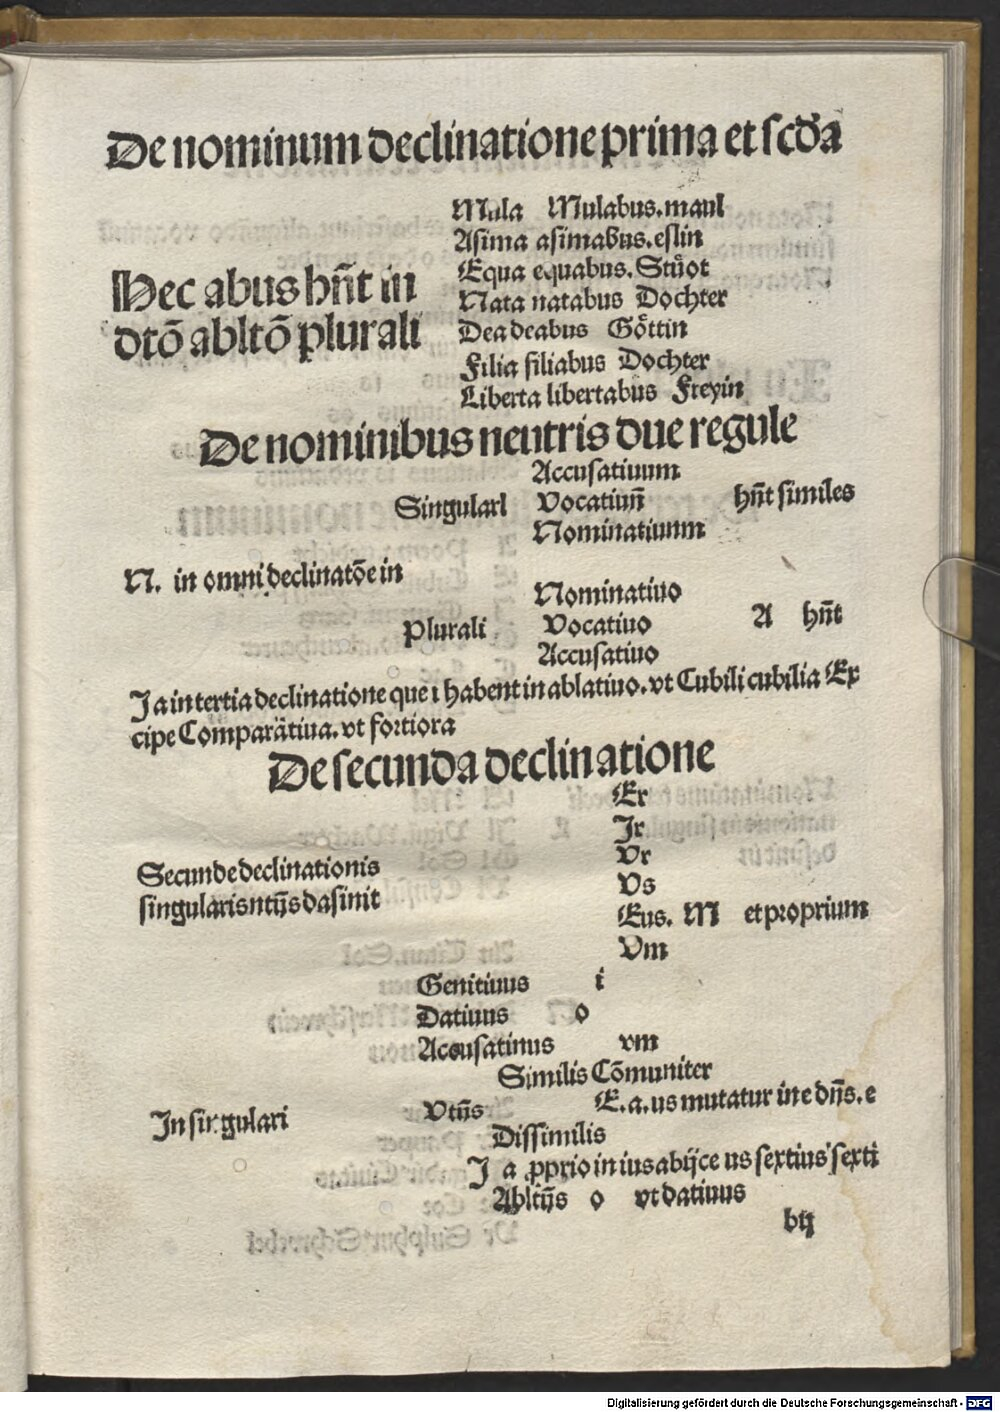 De nominum declinatione prima et scd̄a
Mula Mulabus. maul
Asima asimabus. eslin
Equa equabus. Stůot
Hec abus hn̄t in
Nata natabus Dochter
dtō abltō plurali
Dea deabus Göttin
Filia filiabus Dochter
Liberta libertabus Freyin
De nominibus neutris due regule
Accusatiuum
Singulari Vocatiuū hn̄t similes
Nominatiuum
N. in omni declinatōe in
Nominatiuo
Plurali Vocatiuo A hn̄t
Accusatiuo
Ja in tertia declinatione que i habent in ablatiuo. vt Cubili cubilia Ex
cipe Comparätiua. vt fortiora
De secunda declinatione
Er
Ir
Vr
Secunde declinationis
Vs
singularis ntijs da finit
Eus. M et proprium
Vm
Genitiuus i
Datiuus o
Accusatinus vm
Similis Cōmuniter
In singulari Vtūs E. a. us mutatur in e dn̄s. e
Dissimilis
J a pprio in ius abijce us sextius sexti
Abltūs o vt datiuus
bij
Digitalisierung gefördert durch die Deutsche Forschungsgemeinschaft - DFG